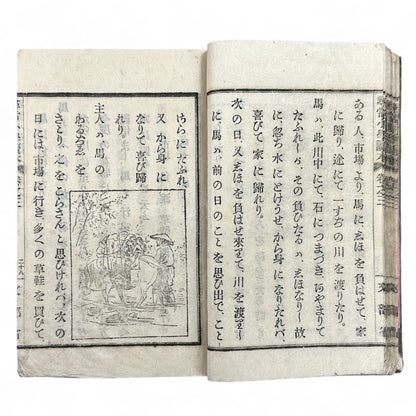 ある人、市場より、馬にゑほを負はせて、家
に歸り、途にて一すぢの川を渡りたり。
馬ハ此川中にて石につまづきあやまりて
たふれゝが、その負ひたるハ、ゑほなりゝ故
に、忽ち水にとけうせ、から身になりたれバ、
喜びて家に歸れり。
次の日又ゑほを負はせ來て、川を渡りゝ
に、馬ハ前の日のことを思ひ出で、こと
さらにたふれ
又から身に
なりて喜び歸
れり
主人ハ馬の
わるぢゑを
さとり、之をこらさんと思ひけれバ、次の
日には市場に行き、多くの草鞋を買ひて、
文部省